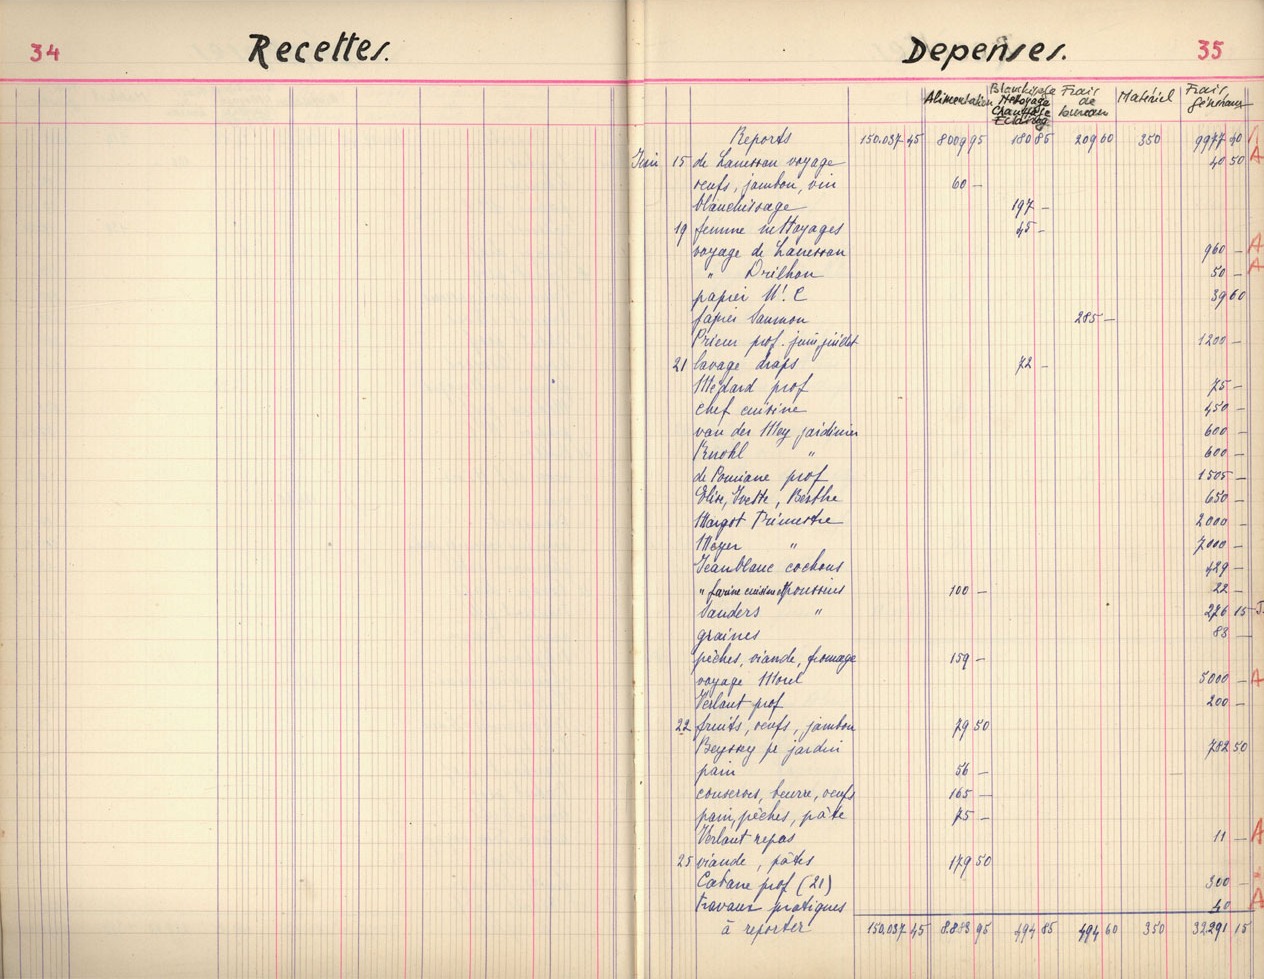 34 Recettes.
Depenses. 35
Alimentation Blanchissage Nettoyage Chauffage Eclairage Frais de bureau Matériel Frais généraux
Reports 150.037 45 8009 95 180 85 209 60 350 9977 40
Juin 15 de Lanessan voyage 40 50 A
oeufs, jambon, vin 60 –
blanchissage 197 –
19 femme nettoyages 45 –
voyage de Lanessan 960 – A
" Drilhon 50 – A
papier W. C 39 60
papier Saumon 285 –
Prieur prof. juin, juillet 1200 –
21 lavage draps 72 –
Médard prof 75 –
chef cuisine 450 –
van der Mey jardinier 600 –
Knohl " 600 –
de Pomiane prof 1505 –
Elise, Yvette, Berthe 650 –
Margot Trimestre 2000 –
Moyer " 7000 –
Jeanblanc cochons 429 –
" farine cuisine et poussins 100 – 22 –
Sanders " 276 15
graines 83 –
pêches, viande, fromage 159 –
voyage Morel 5000 – A
Verlaut prof 200 –
22 fruits, oeufs, jambon 79 50
Beyssey pr jardin 782 50
pain 56 –
conserves, beurre, oeufs 165 –
pain, pêches, pâte 75 –
Verlaut repas 11 – A
25 viande, pâtes 179 50
Cabane prof (21) 300 –
travaux pratiques 40 A
à reporter 150.037 45 8.883 95 494 85 494 60 350 32291 15